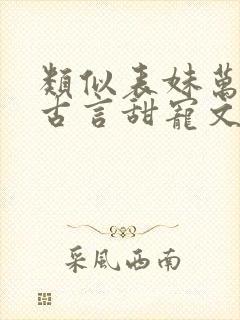 類似表妹萬
古言甜寵文
采風西南